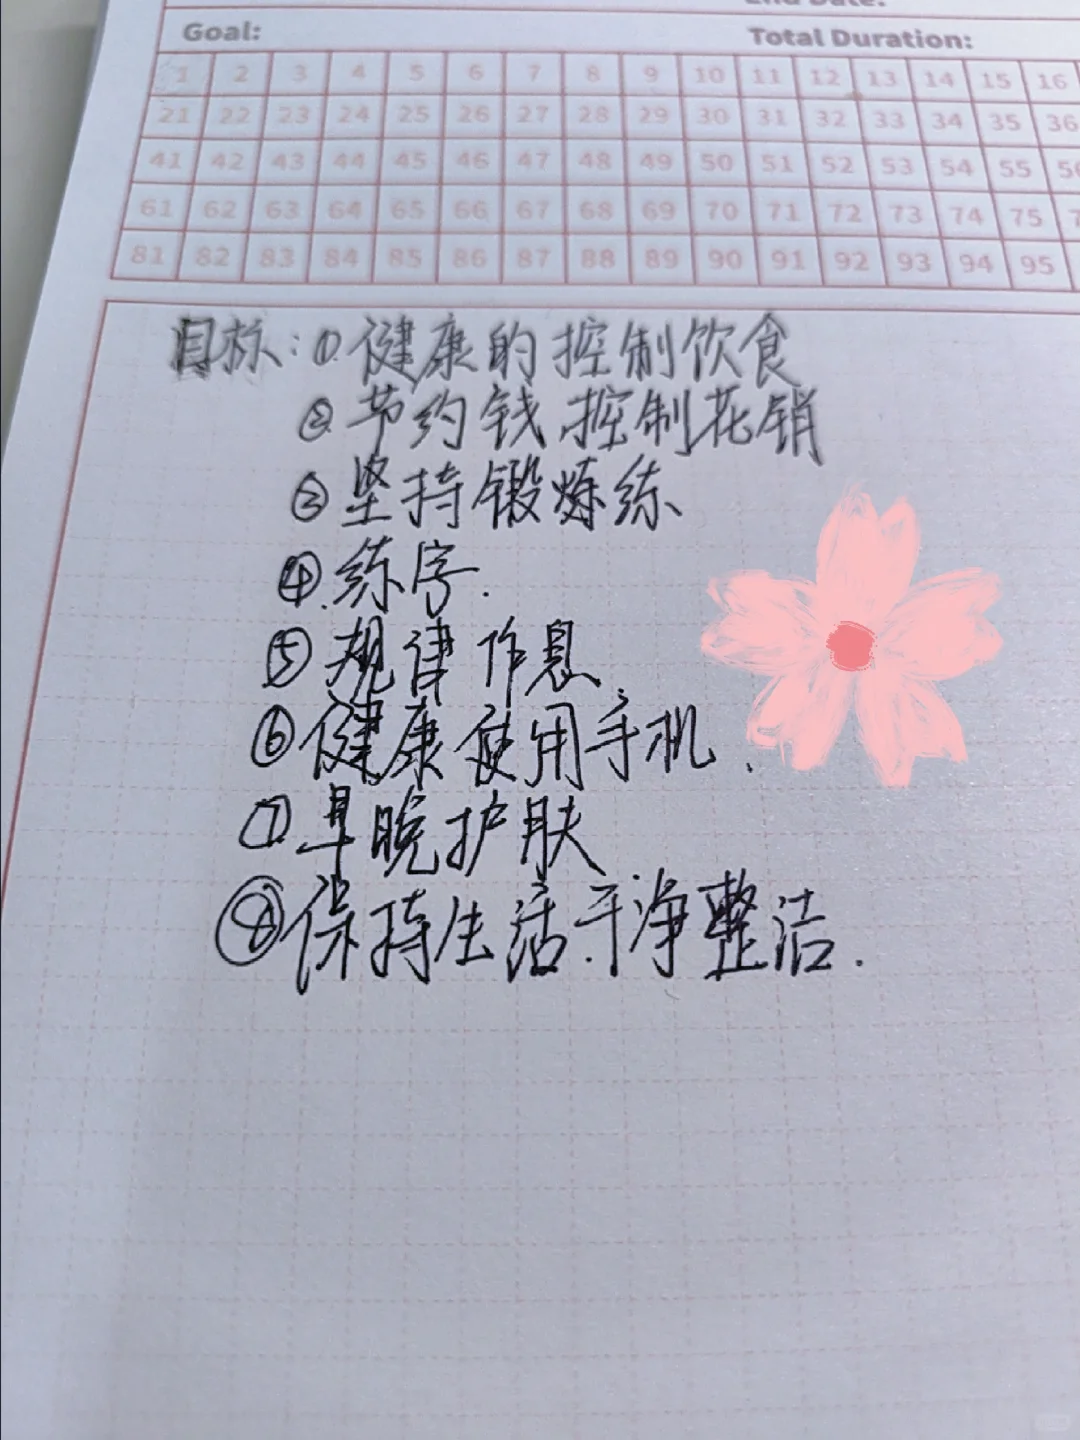 Goal:
Total Duration:
1 2 3 4 5 6 7 8 9 10 11 12 13 14 15 16
21 22 23 24 25 26 27 28 29 30 31 32 33 34 35 36
41 42 43 44 45 46 47 48 49 50 51 52 53 54 55
61 62 63 64 65 66 67 68 69 70 71 72 73 74 75
81 82 83 84 85 86 87 88 89 90 91 92 93 94 95
目标:①.健康的控制饮食
②.节约钱 控制花销
③坚持锻炼练
④.练字.
⑤规律作息.
⑥健康使用手机.
⑦早晚护肤
⑧保持生活.干净整洁.